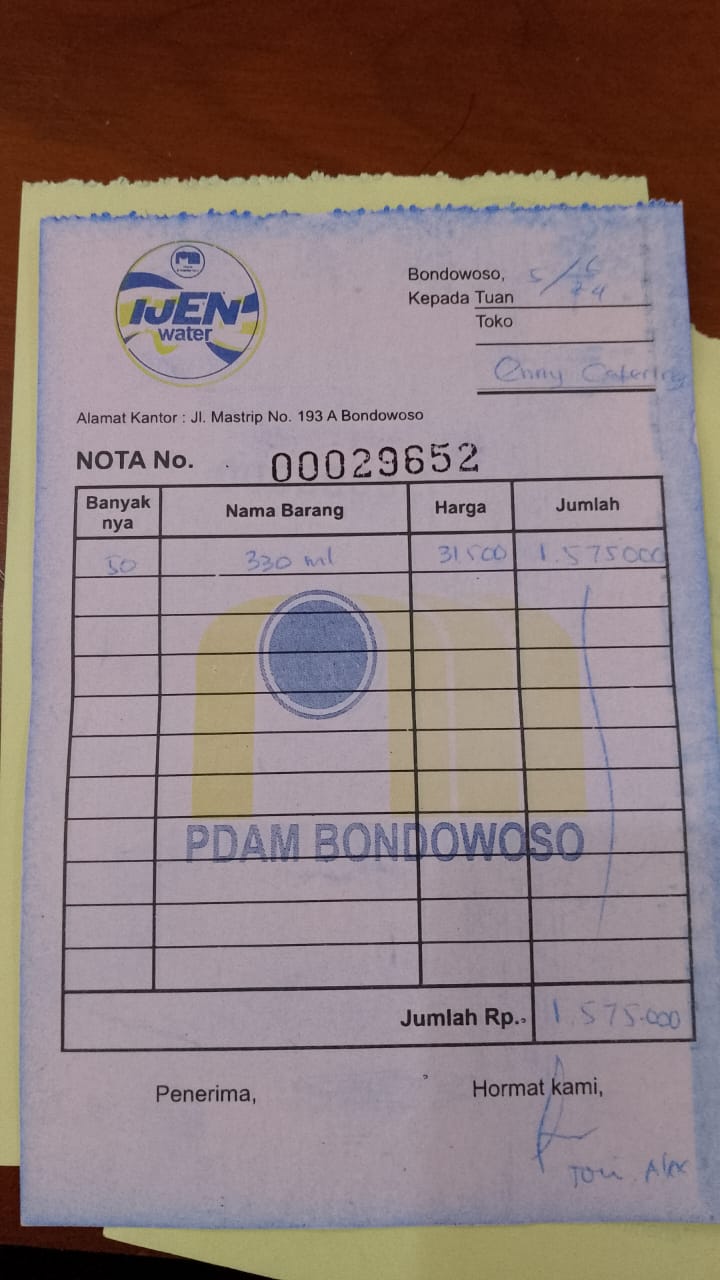 IJEN
water
Bondowoso, 5/6/24
Kepada Tuan
Toko
Onny Catering
Alamat Kantor : Jl. Mastrip No. 193 A Bondowoso
NOTA No. 00029652
Banyak nya Nama Barang Harga Jumlah
50 330 ml 31.500 1.575000
PDAM BONDOWOSO
Jumlah Rp. 1.575.000
Penerima, Hormat kami,